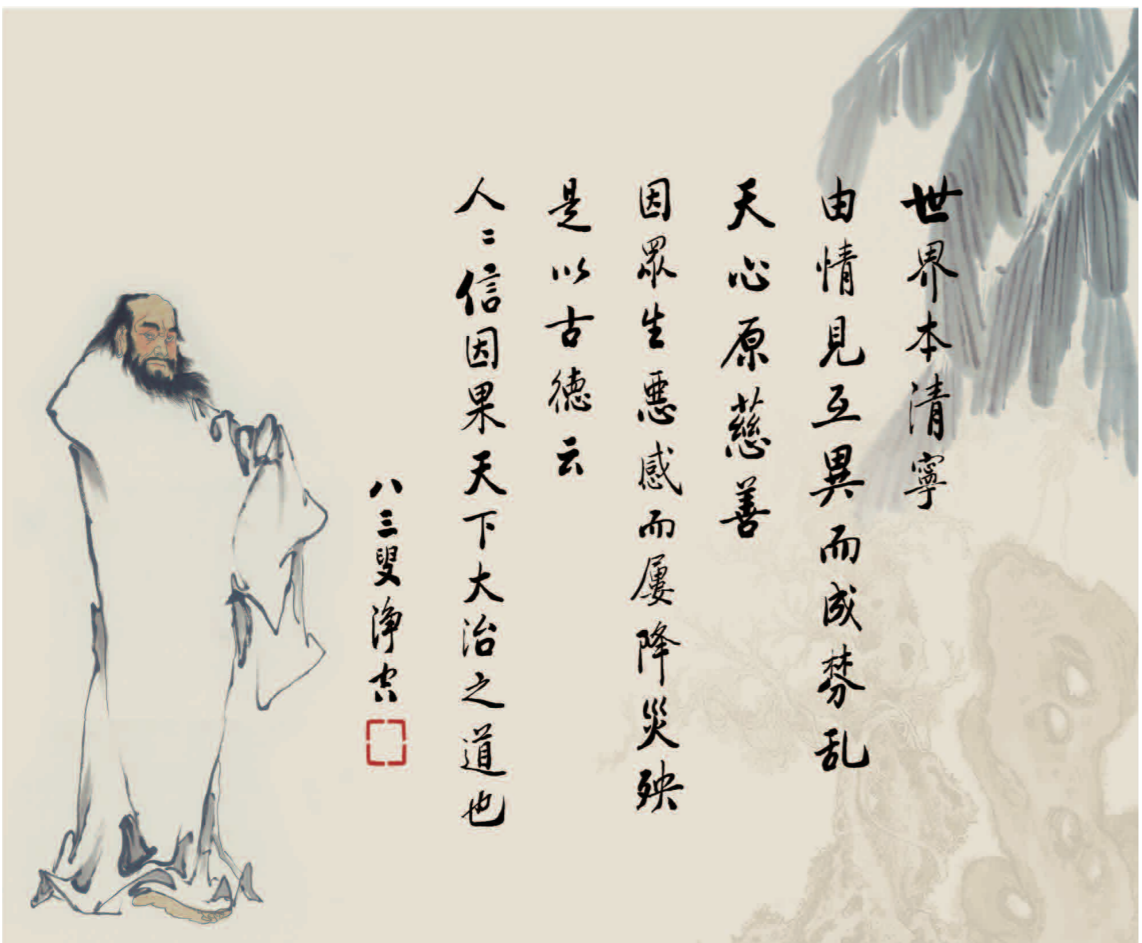 世界本清寧
由情見互異而成棼乱
天心原慈善
因眾生惡感而屢降災殃
是以古德云
人〻信因果天下大治之道也
八三叟淨空